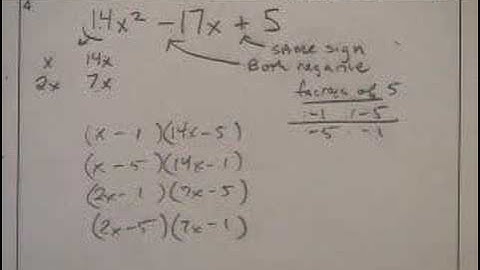 4.
14x² - 17x + 5
SAME sign
Both negative
x 14x
2x 7x
factors of 5
-1 | -5
-5 -1
(x - 1)(14x - 5)
(x - 5)(14x - 1)
(2x - 1)(7x - 5)
(2x - 5)(7x - 1)